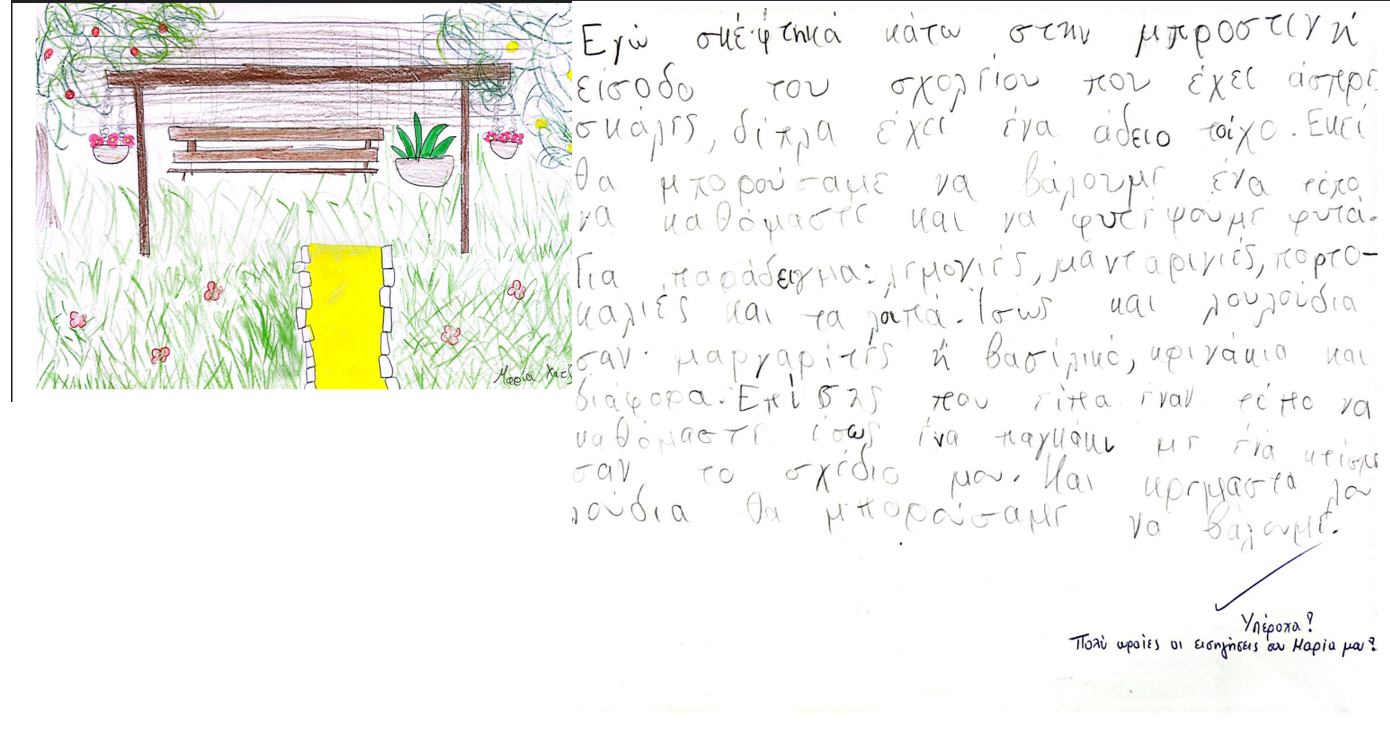 Μαρία Χατζ
Εγώ σκέφτηκά κάτω στην μπροστινή
είσοδο του σχολείου που έχει άσπρε
σκάλες, δίπλα έχει ένα άδειο τοίχο. Εκεί
θα μπορούσαμε να βάλουμε ένα τόπο
να καθόμαστε και να φυτέψουμε φυτά.
Για παράδειγμα: λεμονιές, μανταρινιές, πορτο-
καλιές και τα λοιπά. Ίσως και λουλούδια
σαν μαργαρίτες ή βασιλικό, κρινάκια και
διάφορα. Επίσης που είπα έναν τόπο να
καθόμαστε ίσως ένα παγκάκι με ένά κτίσμα
σαν το σχέδιο μου. Και κρεμαστα λου
λούδια θα μπορούσαμε να βάλουμε.
Υπέροχα!
Πολύ ωραίες οι εισηγήσεις σου Μαρία μου!